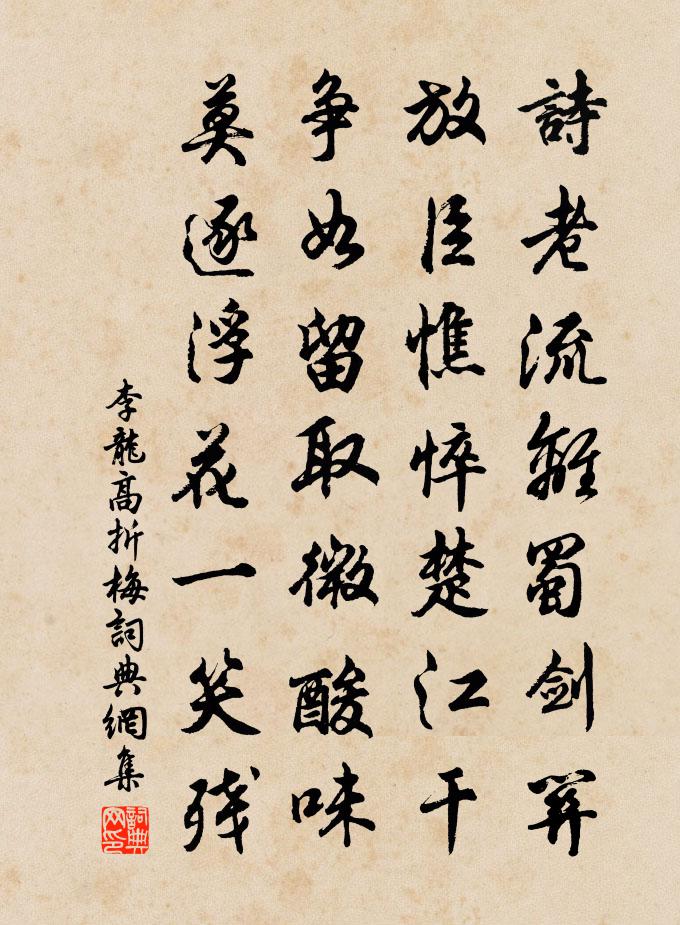 詩老流離蜀劍關
放臣憔悴楚江干
争如留取微酸味
莫逐浮花一笑残
李龍高折梅詞典網集
詞典网印